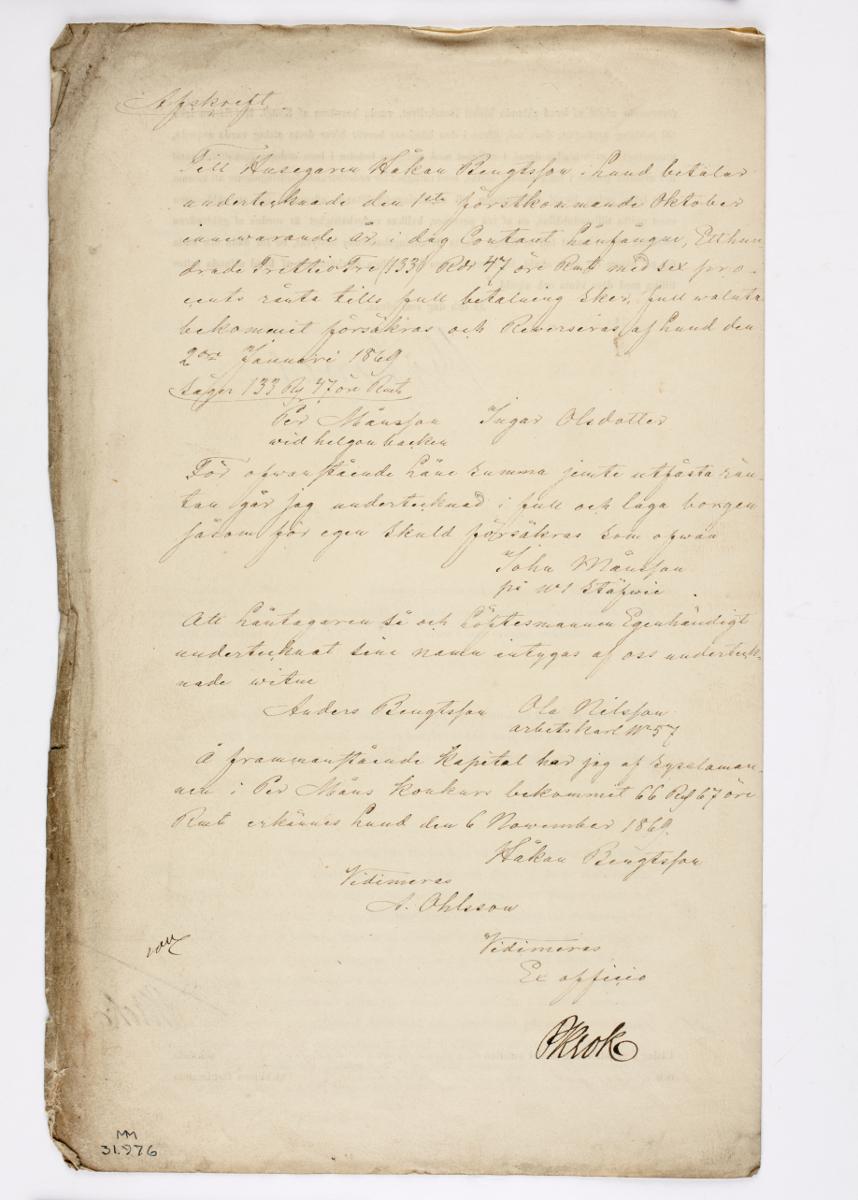 Afskrift
Till Husegaren Håkan Bengtsson i Lund betalar
undertecknade den 1sta förstkommande Oktober
innewarande År, i dag Contant Lånfångne, Etthun
drade TrettioTre (133) Rdr 47 öre Rmt med sex pro-
cents ränta tills full betalning sker, full waluta
bekommit försäkras och Reverseras af Lund den
2dra Januari 1869
Säger 133 Rd 47 öre Rmt
Per Månsson Ingar Olsdotter
wid helgonbacken
För ofwanstående Låne summa jemte utfästa rän-
tan går jag undertecknad i full och laga borgen
såsom för egen skuld försäkras som ofwan
John Månsson
på No 1 Stäfwie
Att Låntagaren så och Löftesmannen Egenhändigt
undertecknat sine namn intygas af oss underteck-
nade witne
Anders Bengtsson Ola Nilsson
arbetskarl No 57
Å frammanstående Kapital har jag af Sysslaman-
nen i Per Måns Konkurs bekommit 66 Rd 67 öre
Rmt erkännes Lund den 6 November 1869.
Håkan Bengtsson
Vidimeras
A. Ohlsson
Vidimeras
Ex officio
PKrok
MM
31.976